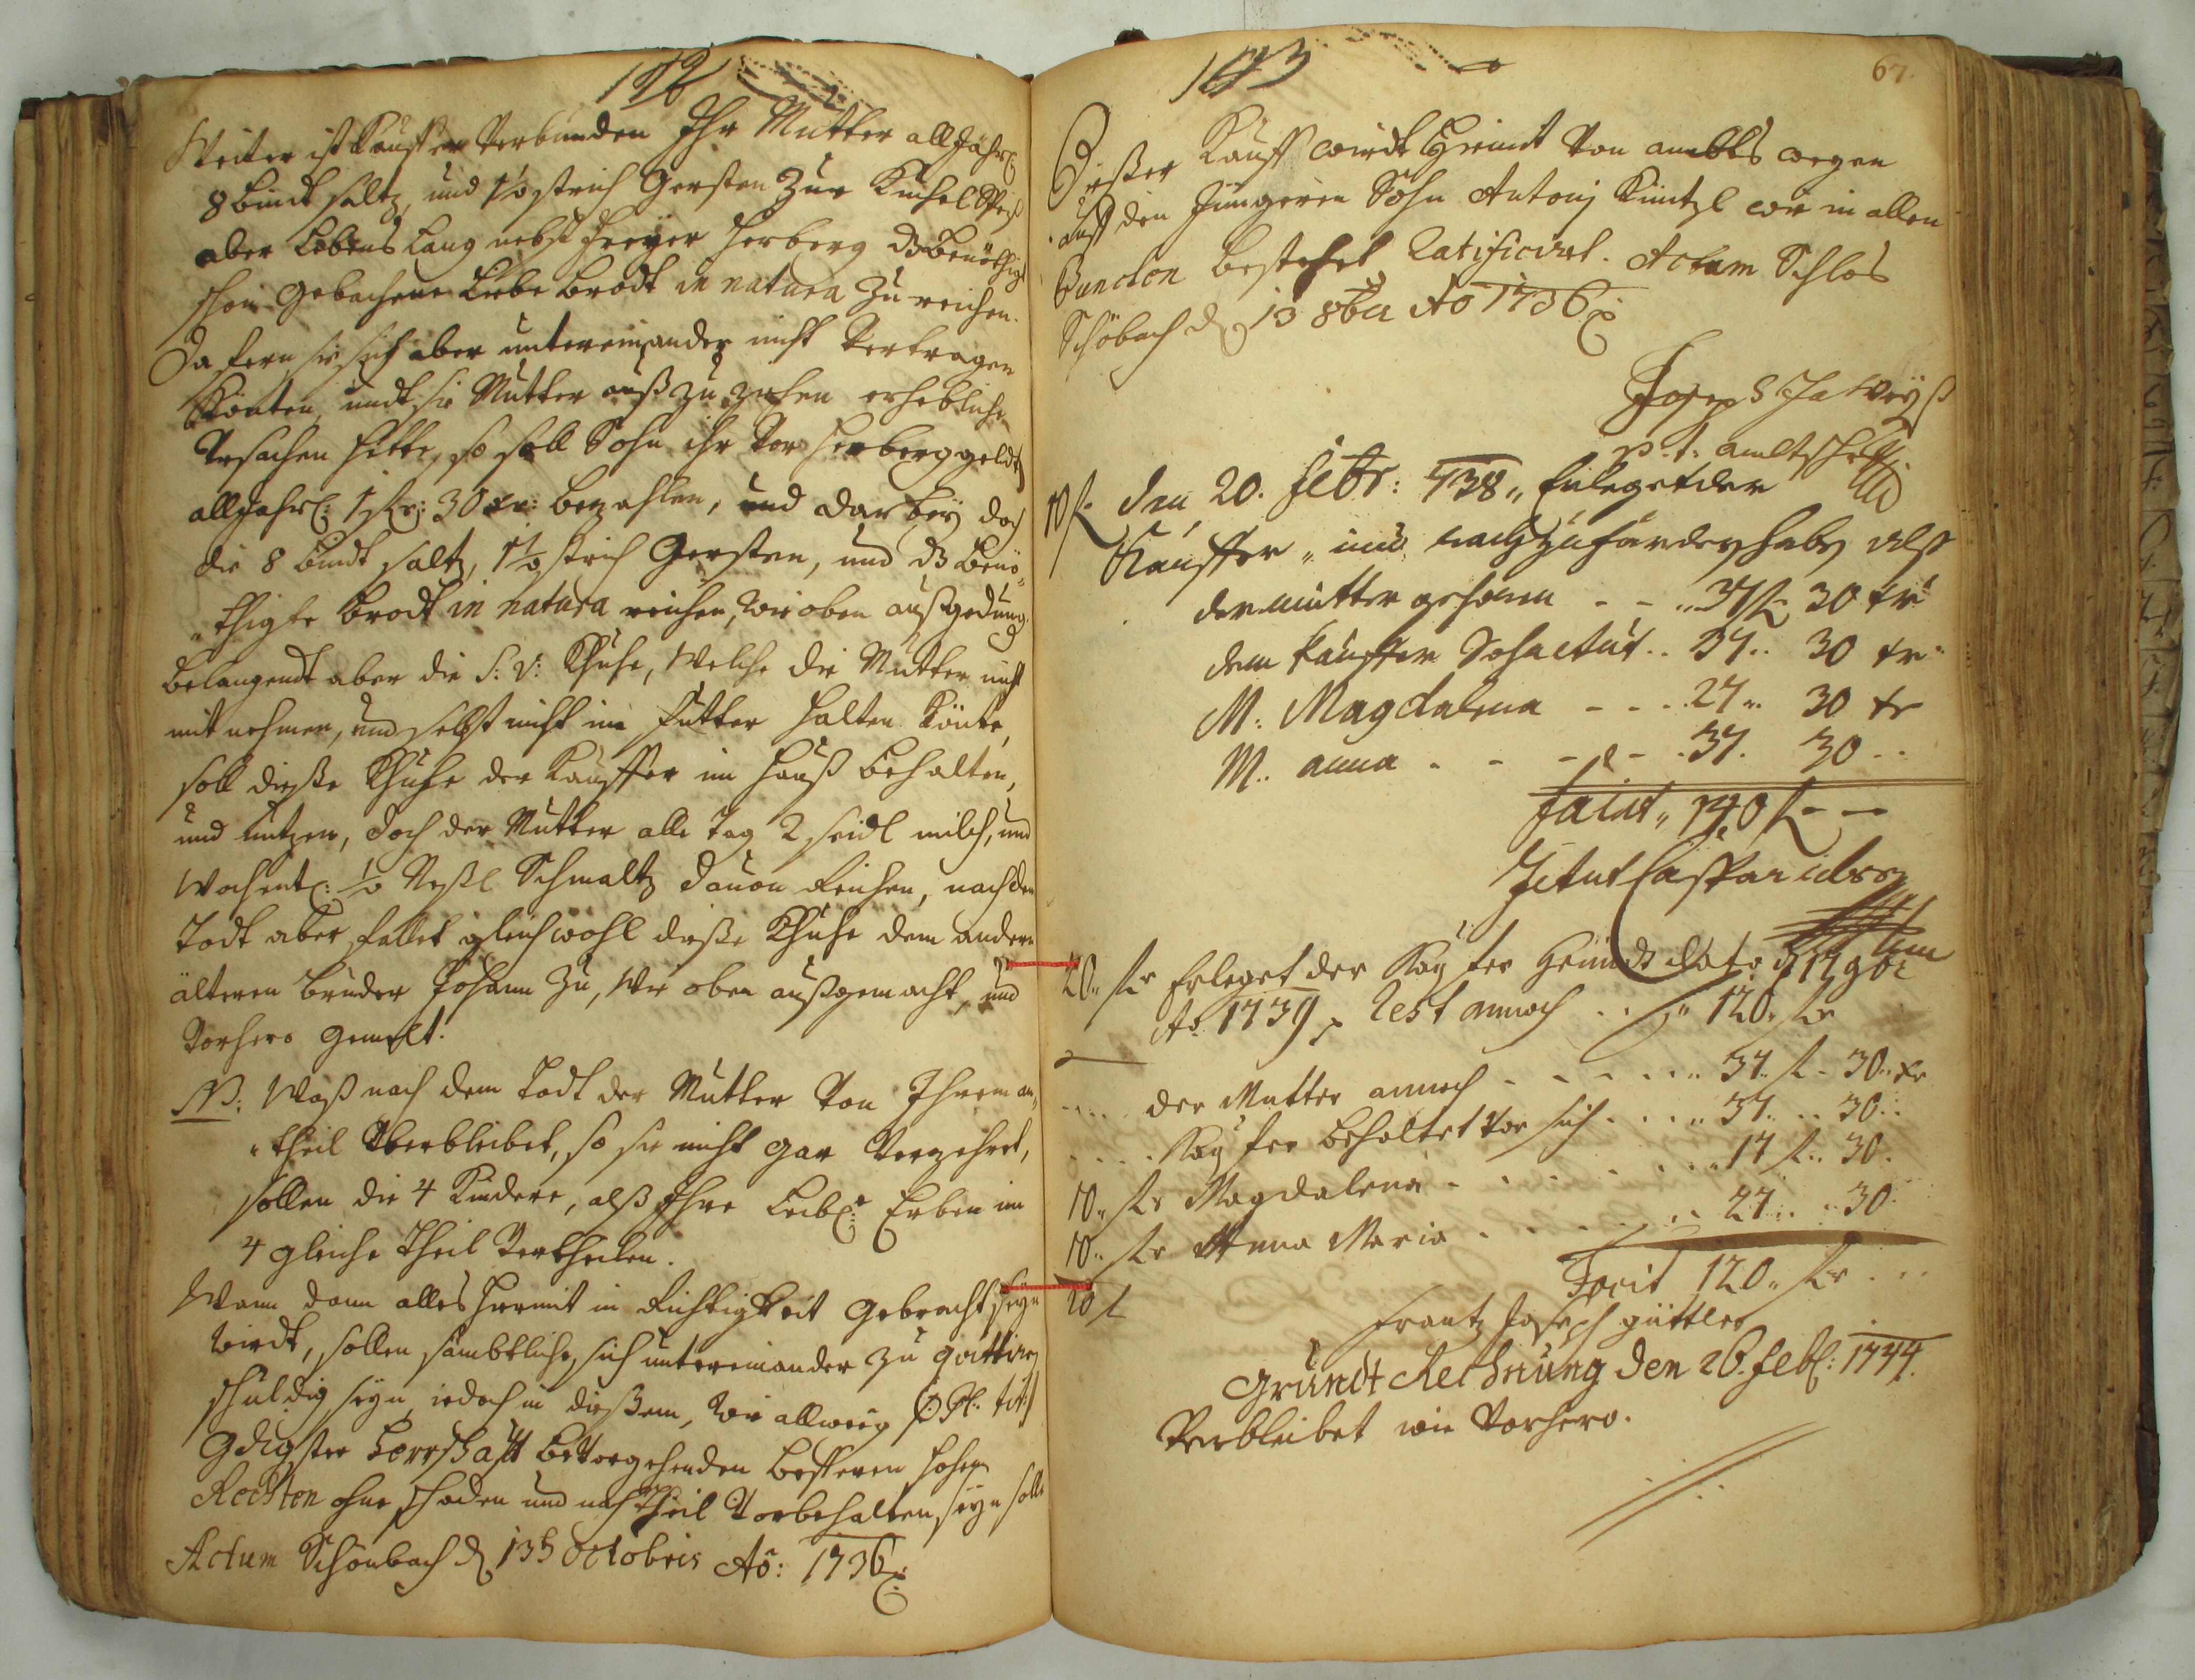 Weiter ist Kauffer Verbunden Ihr Mutter all Jährl:
8 bindt saltz, und 1½ strich Gersten zur Kuchel Speiß
aber Lebens Lang nebst freyer Herberg dz benöthigte
schon Gebachene Liebe brodt in natura zu reichen.
Da fern sie sich aber untereinander nicht Vertragen
Könten, undt die Mutter auß zu ziehen erhebliche
Ursachen hätte, so soll Sohn ihr Vor herberggeldt
all Jährl: 1 fl: 30 xr: bezahlen, und darbey doch
die 8 bindt saltz, 1½ strich Gersten, und dz benö-
thigte brodt in natura reichen, wie oben außgedung.
belangendt aber die S: V: Khuhe, Welche die Mutter nicht
mit nehmen, und selbst nicht im futter halten Könte,
soll dieße Khuhe der Kauffer im Hauß behalten,
und nutzen, doch der Mutter alle Tag 2 seidl milch, und
Wochentl: ½ Neßl Schmaltz dauon Reichen, nach dem
Todt aber fallet gleichwohl dieße Khuhe dem andern
älteren bruder Johann zu, Wie oben außgemacht, und
Vorhero gemelt.
NB: Waß nach dem Todt der Mutter Von Ihrem an-
theil Uberbleibet, so sie nicht gar Verzehret,
sollen die 4 Kindere, alß Ihre Leibl: Erben in
4 gleiche Theil Vertheilen.
Wann dann alles hiermit in Richtigkeit Gebracht seyn
wirdt, sollen sämbtliche, sich untereinander zu quittiren
schuldig seyn, iedoch in dießem, wie allweeg (P: Pl: tit:)
Gdigster Herrschafft bevorgehenden besseren hohen
Rechten ohne schaden und nachtheil Vorbehalten seyn solle
Actum Schönbach d 13t Octobris Aō: 1736
1673
67.
Dießer Kauff wirdt Hiemit Von ambts wegen
auff den Jüngeren Sohn Antonj Küntzl wie in allen
Puncten bestehet Ratificiret. Actum Schlos
Schöbach d 13 8ber Ao 1736
p. t. ambtsch
10 fl den 20. Febr: 738 Erleget der
Kauffer, nun nach zu fordern haben alß
der Mutter gehören - - 37 fl 30 xr
dem Kauffer Sohn .. 37 .. 30 xr
M: Magdalena - - - 27 .. 30 xr
M: anna - - - - 37. 30 ..
facit 140 fl - -
20 fl Erleget der Kauffer Heindt dato d 17 9br
Aō 1739, Rest annoch .. 120 fl
der Mutter annoch - - - - 37 fl 30 xr
Kauffer behaltet Vor sich .... 37 .. 30 ..
10 fl Magdalena - ...... 17 fl 30
10 fl Anna Maria - ...... 27 .. 30
20 fl
Facit 120 fl ...
Frantz Joseph güttler
Grundt Rechnung den 26. feb: 1744.
Verbleibet wie Vorhero.